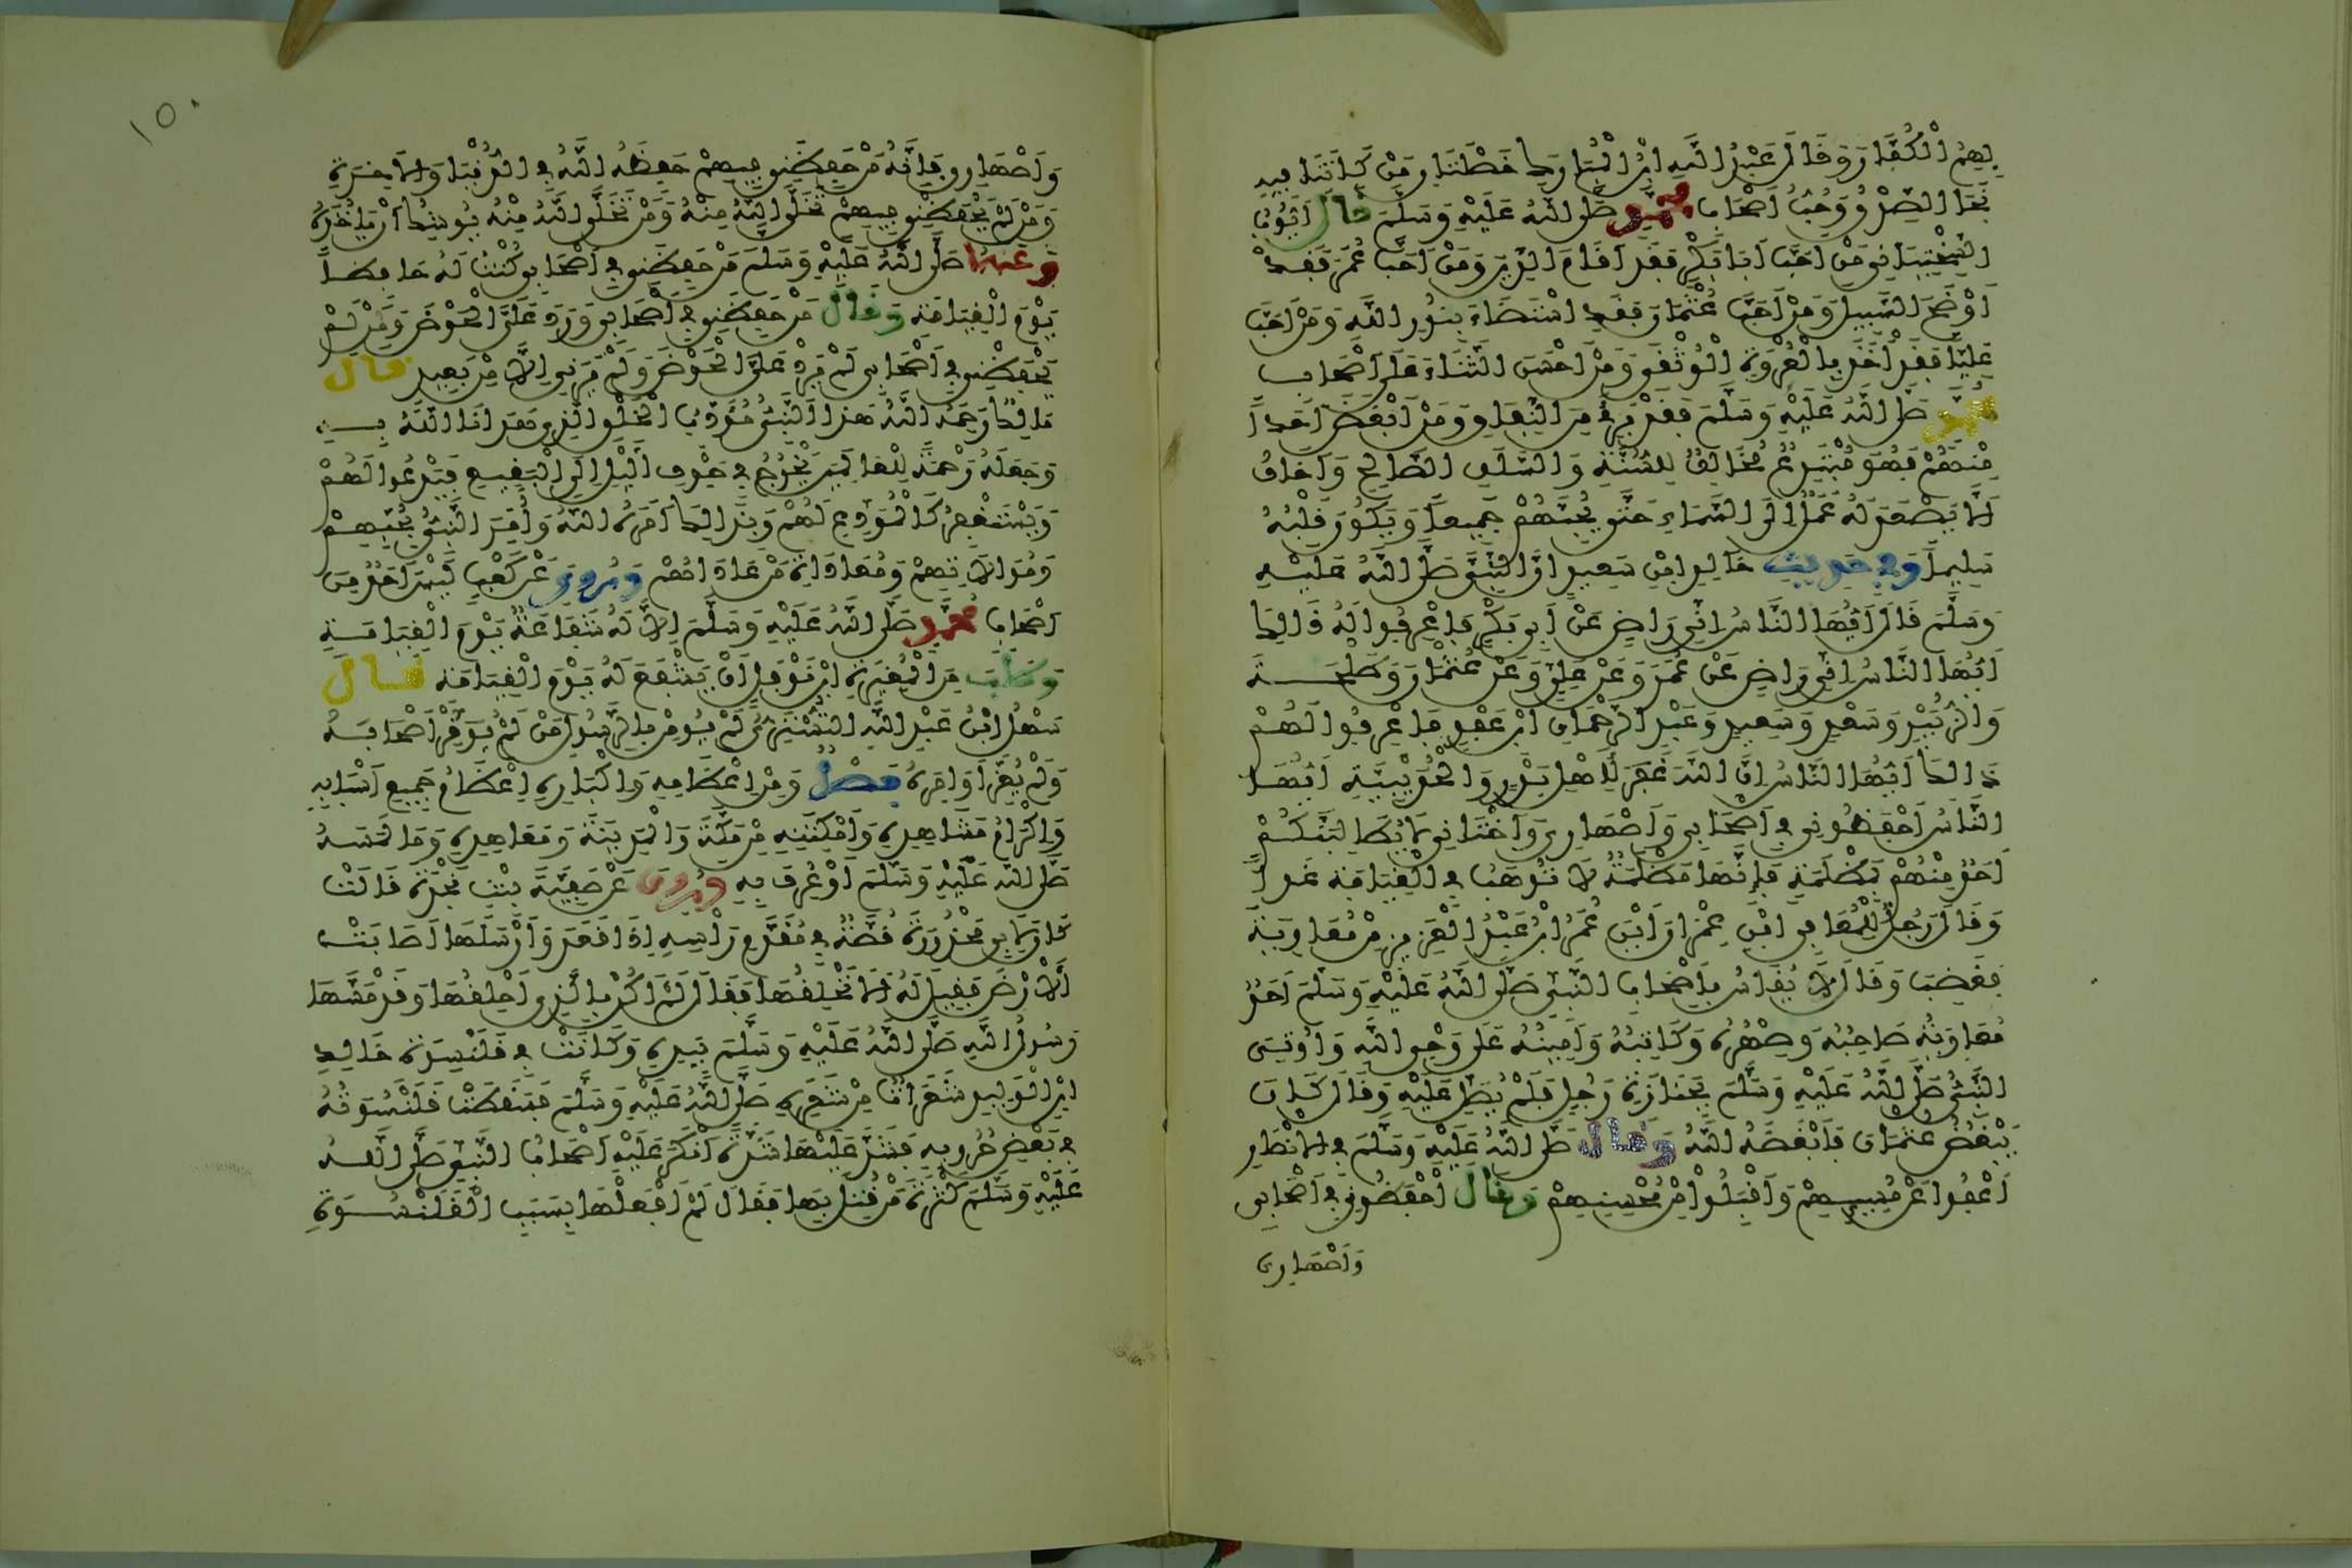 بِهِمُ الْكُفَّارَ وَقَالَ عَبْدُ اللَّهِ ابْنُ الْمُبَارَكِ خَصْلَتَانِ مَنْ كَانَتَا فِيهِ
نَجَا الصِّدْقُ وَحُبُّ أَصْحَابِ مُحَمَّدٍ صَلَّى اللَّهُ عَلَيْهِ وَسَلَّمَ قَالَ أَيُّوبُ
السَّخْتِيَانِي مَنْ أَحَبَّ أَبَا بَكْرٍ فَقَدْ أَقَامَ الدِّينَ وَمَنْ أَحَبَّ عُمَرَ فَقَدْ
أَوْضَحَ السَّبِيلَ وَمَنْ أَحَبَّ عُثْمَانَ فَقَدِ اسْتَضَاءَ بِنُورِ اللَّهِ وَمَنْ أَحَبَّ
عَلِيًّا فَقَدْ أَخَذَ بِالْعُرْوَةِ الْوُثْقَى وَمَنْ أَحْسَنَ الثَّنَاءَ عَلَى أَصْحَابِ
مُحَمَّدٍ صَلَّى اللَّهُ عَلَيْهِ وَسَلَّمَ فَقَدْ بَرِئَ مِنَ النِّفَاقِ وَمَنْ أَبْغَضَ أَحَداً
مِنْهُمْ فَهُوَ مُبْتَدِعٌ مُخَالِفٌ لِلسُّنَّةِ وَالسَّلَفِ الصَّالِحِ وَأَخَافُ
أَلَّا يَصْعَدَ لَهُ عَمَلٌ إِلَى السَّمَاءِ حَتَّى يُحِبَّهُمْ جَمِيعاً وَيَكُونَ قَلْبُهُ
سَلِيماً وَفِي حَدِيثِ خَالِدِ ابْنِ سَعِيدٍ أَنَّ النَّبِيَّ صَلَّى اللَّهُ عَلَيْهِ
وَسَلَّمَ قَالَ أَيُّهَا النَّاسُ إِنِّي رَاضٍ عَنْ أَبِي بَكْرٍ فَاعْرِفُوا لَهُ ذَالِكَ
أَيُّهَا النَّاسُ إِنِّي رَاضٍ عَنْ عُمَرَ وَعَنْ عَلِيٍّ وَعَنْ عُثْمَانَ وَطَلْحَةَ
وَالزُّبَيْرِ وَسَعْدٍ وَسَعِيدٍ وَعَبْدِ الرَّحْمَانِ ابْنِ عَوْفٍ فَاعْرِفُوا لَهُمْ
ذَالِكَ أَيُّهَا النَّاسُ إِنَّ اللَّهَ غَفَرَ لِأَهْلِ بَدْرٍ وَالْحُدَيْبِيَّةِ أَيُّهَا
النَّاسُ احْفَظُونِي فِي أَصْحَابِي وَأَصْهَارِي وَأَخْتَانِي لَا يُطَالِبَنَّكُمْ
أَحَدٌ مِنْهُمْ بِمَظْلَمَةٍ فَإِنَّهَا مَظْلَمَةٌ لَا تُوهَبُ فِي الْقِيَامَةِ غَداً
وَقَالَ رَجُلٌ لِلْمُعَافِي ابْنِ عِمْرَانَ أَيْنَ عُمَرُ ابْنُ عَبْدِ الْعَزِيزِ مِنْ مُعَاوِيَةَ
فَغَضِبَ وَقَالَ لَا يُقَاسُ بِأَصْحَابِ النَّبِيِّ صَلَّى اللَّهُ عَلَيْهِ وَسَلَّمَ أَحَدٌ
مُعَاوِيَةُ صَاحِبُهُ وَصِهْرُهُ وَكَاتِبُهُ وَأَمِينُهُ عَلَى وَحْيِ اللَّهِ وَأُوتِيَ
النَّبِيُّ صَلَّى اللَّهُ عَلَيْهِ وَسَلَّمَ بِجَنَازَةِ رَجُلٍ فَلَمْ يُصَلِّ عَلَيْهِ وَقَالَ كَانَ
يَبْغُضُ عُثْمَانَ فَأَبْغَضَهُ اللَّهُ وَقَالَ صَلَّى اللَّهُ عَلَيْهِ وَسَلَّمَ فِي الْأَنْصَارِ
اعْفُوا عَنْ مُسِيئِهِمْ وَاقْبَلُوا مِنْ مُحْسِنِهِمْ وَقَالَ احْفَظُونِي فِي أَصْحَابِي
وَأَصْهَارِي
١٥٠
وَأَصْهَارِي فَإِنَّهُ مَنْ حَفِظَنِي فِيهِمْ حَفِظَهُ اللَّهُ فِي الدُّنْيَا وَالْآخِرَةِ
وَمَنْ لَمْ يَحْفَظْنِي فِيهِمْ تَخَلَّى اللَّهُ مِنْهُ وَمَنْ تَخَلَّى اللَّهُ مِنْهُ يُوشِكُ أَنْ يَأْخُذَهُ
وَعَنْهُ صَلَّى اللَّهُ عَلَيْهِ وَسَلَّمَ مَنْ حَفِظَنِي فِي أَصْحَابِي كُنْتُ لَهُ حَافِظاً
يَوْمَ الْقِيَامَةِ وَقَالَ مَنْ حَفِظَنِي فِي أَصْحَابِي وَرَدَ عَلَيَّ الْحَوْضَ وَمَنْ لَمْ
يَحْفَظْنِي فِي أَصْحَابِي لَمْ يَرِدْ عَلَيَّ الْحَوْضَ وَلَمْ يَرَنِي إِلَّا مِنْ بَعِيدٍ قَالَ
مَالِكٌ رَحِمَهُ اللَّهُ هَذَا النَّبِيُّ مُؤَدِّبُ الْخَلْقِ الَّذِي هَدَانَا اللَّهُ بِهِ
وَجَعَلَهُ رَحْمَةً لِلْعَالَمِينَ يَخْرُجُ فِي جَوْفِ اللَّيْلِ إِلَى الْبَقِيعِ فَيَدْعُوا لَهُمْ
وَيَسْتَغْفِرُ كَالْمُوَدِّعِ لَهُمْ وَبِذَالِكَ أَمَرَهُ اللَّهُ وَأُمِرَ النَّبِيُّ بِحُبِّهِمْ
وَمُوَالَاتِهِمْ وَمُعَادَاةِ مَنْ عَادَاهُمْ وَرُوِيَ عَنْ كَعْبٍ لَيْسَ أَحَدٌ مِنَ
أَصْحَابِ مُحَمَّدٍ صَلَّى اللَّهُ عَلَيْهِ وَسَلَّمَ إِلَّا لَهُ شَفَاعَةٌ يَوْمَ الْقِيَامَةِ
وَطَلَبَ مِنَ الْمُغِيرَةِ ابْنِ نَوْفَلٍ أَنْ يَشْفَعَ لَهُ يَوْمَ الْقِيَامَةِ قَالَ
سَهْلُ ابْنُ عَبْدِ اللَّهِ التُّسْتَرِيُّ لَمْ يُومِنْ بِالرَّسُولِ مَنْ لَمْ يُوَقِّرْ أَصْحَابَهُ
وَلَمْ يُعِزَّ أَوَامِرَهُ فَصْلٌ وَمِنْ إِعْظَامِهِ وَإِكْبَارِهِ إِعْظَامُ جَمِيعِ أَسْبَابِهِ
وَإِكْرَامُ مَشَاهِدِهِ وَأَمْكِنَتِهِ مِنْ مَكَّةَ وَالْمَدِينَةِ وَمَعَاهِدِهِ وَمَا لَمَسَهُ
صَلَّى اللَّهُ عَلَيْهِ وَسَلَّمَ أَوْ عُرِفَ بِهِ وَرُوِيَ عَنْ صَفِيَّةَ بِنْتِ نَجْدَةَ قَالَتْ
كَانَ لِأَبِي مَحْذُورَةَ قُصَّةٌ فِي مُقَدَّمِ رَأْسِهِ إِذَا قَعَدَ وَأَرْسَلَهَا أَصَابَتْ
الْأَرْضَ فَقِيلَ لَهُ أَلَا تَحْلِقُهَا فَقَالَ لَمْ أَكُنْ بِالَّذِي أَحْلِقُهَا وَقَدْ مَسَّهَا
رَسُولُ اللَّهِ صَلَّى اللَّهُ عَلَيْهِ وَسَلَّمَ بِيَدِهِ وَكَانَتْ فِي قَلَنْسُوَةِ خَالِدِ
ابْنِ الْوَلِيدِ شَعَرَاتٌ مِنْ شَعَرِهِ صَلَّى اللَّهُ عَلَيْهِ وَسَلَّمَ فَسَقَطَتْ قَلَنْسُوَتُهُ
فِي بَعْضِ حُرُوبِهِ فَشَدَّ عَلَيْهَا شَدَّةً أَنْكَرَ عَلَيْهِ أَصْحَابُ النَّبِيِّ صَلَّى اللَّهُ
عَلَيْهِ وَسَلَّمَ كَثْرَةَ مَنْ قُتِلَ فِيهَا فَقَالَ لَمْ أَفْعَلْهَا بِسَبَبِ الْقَلَنْسُوَةِ